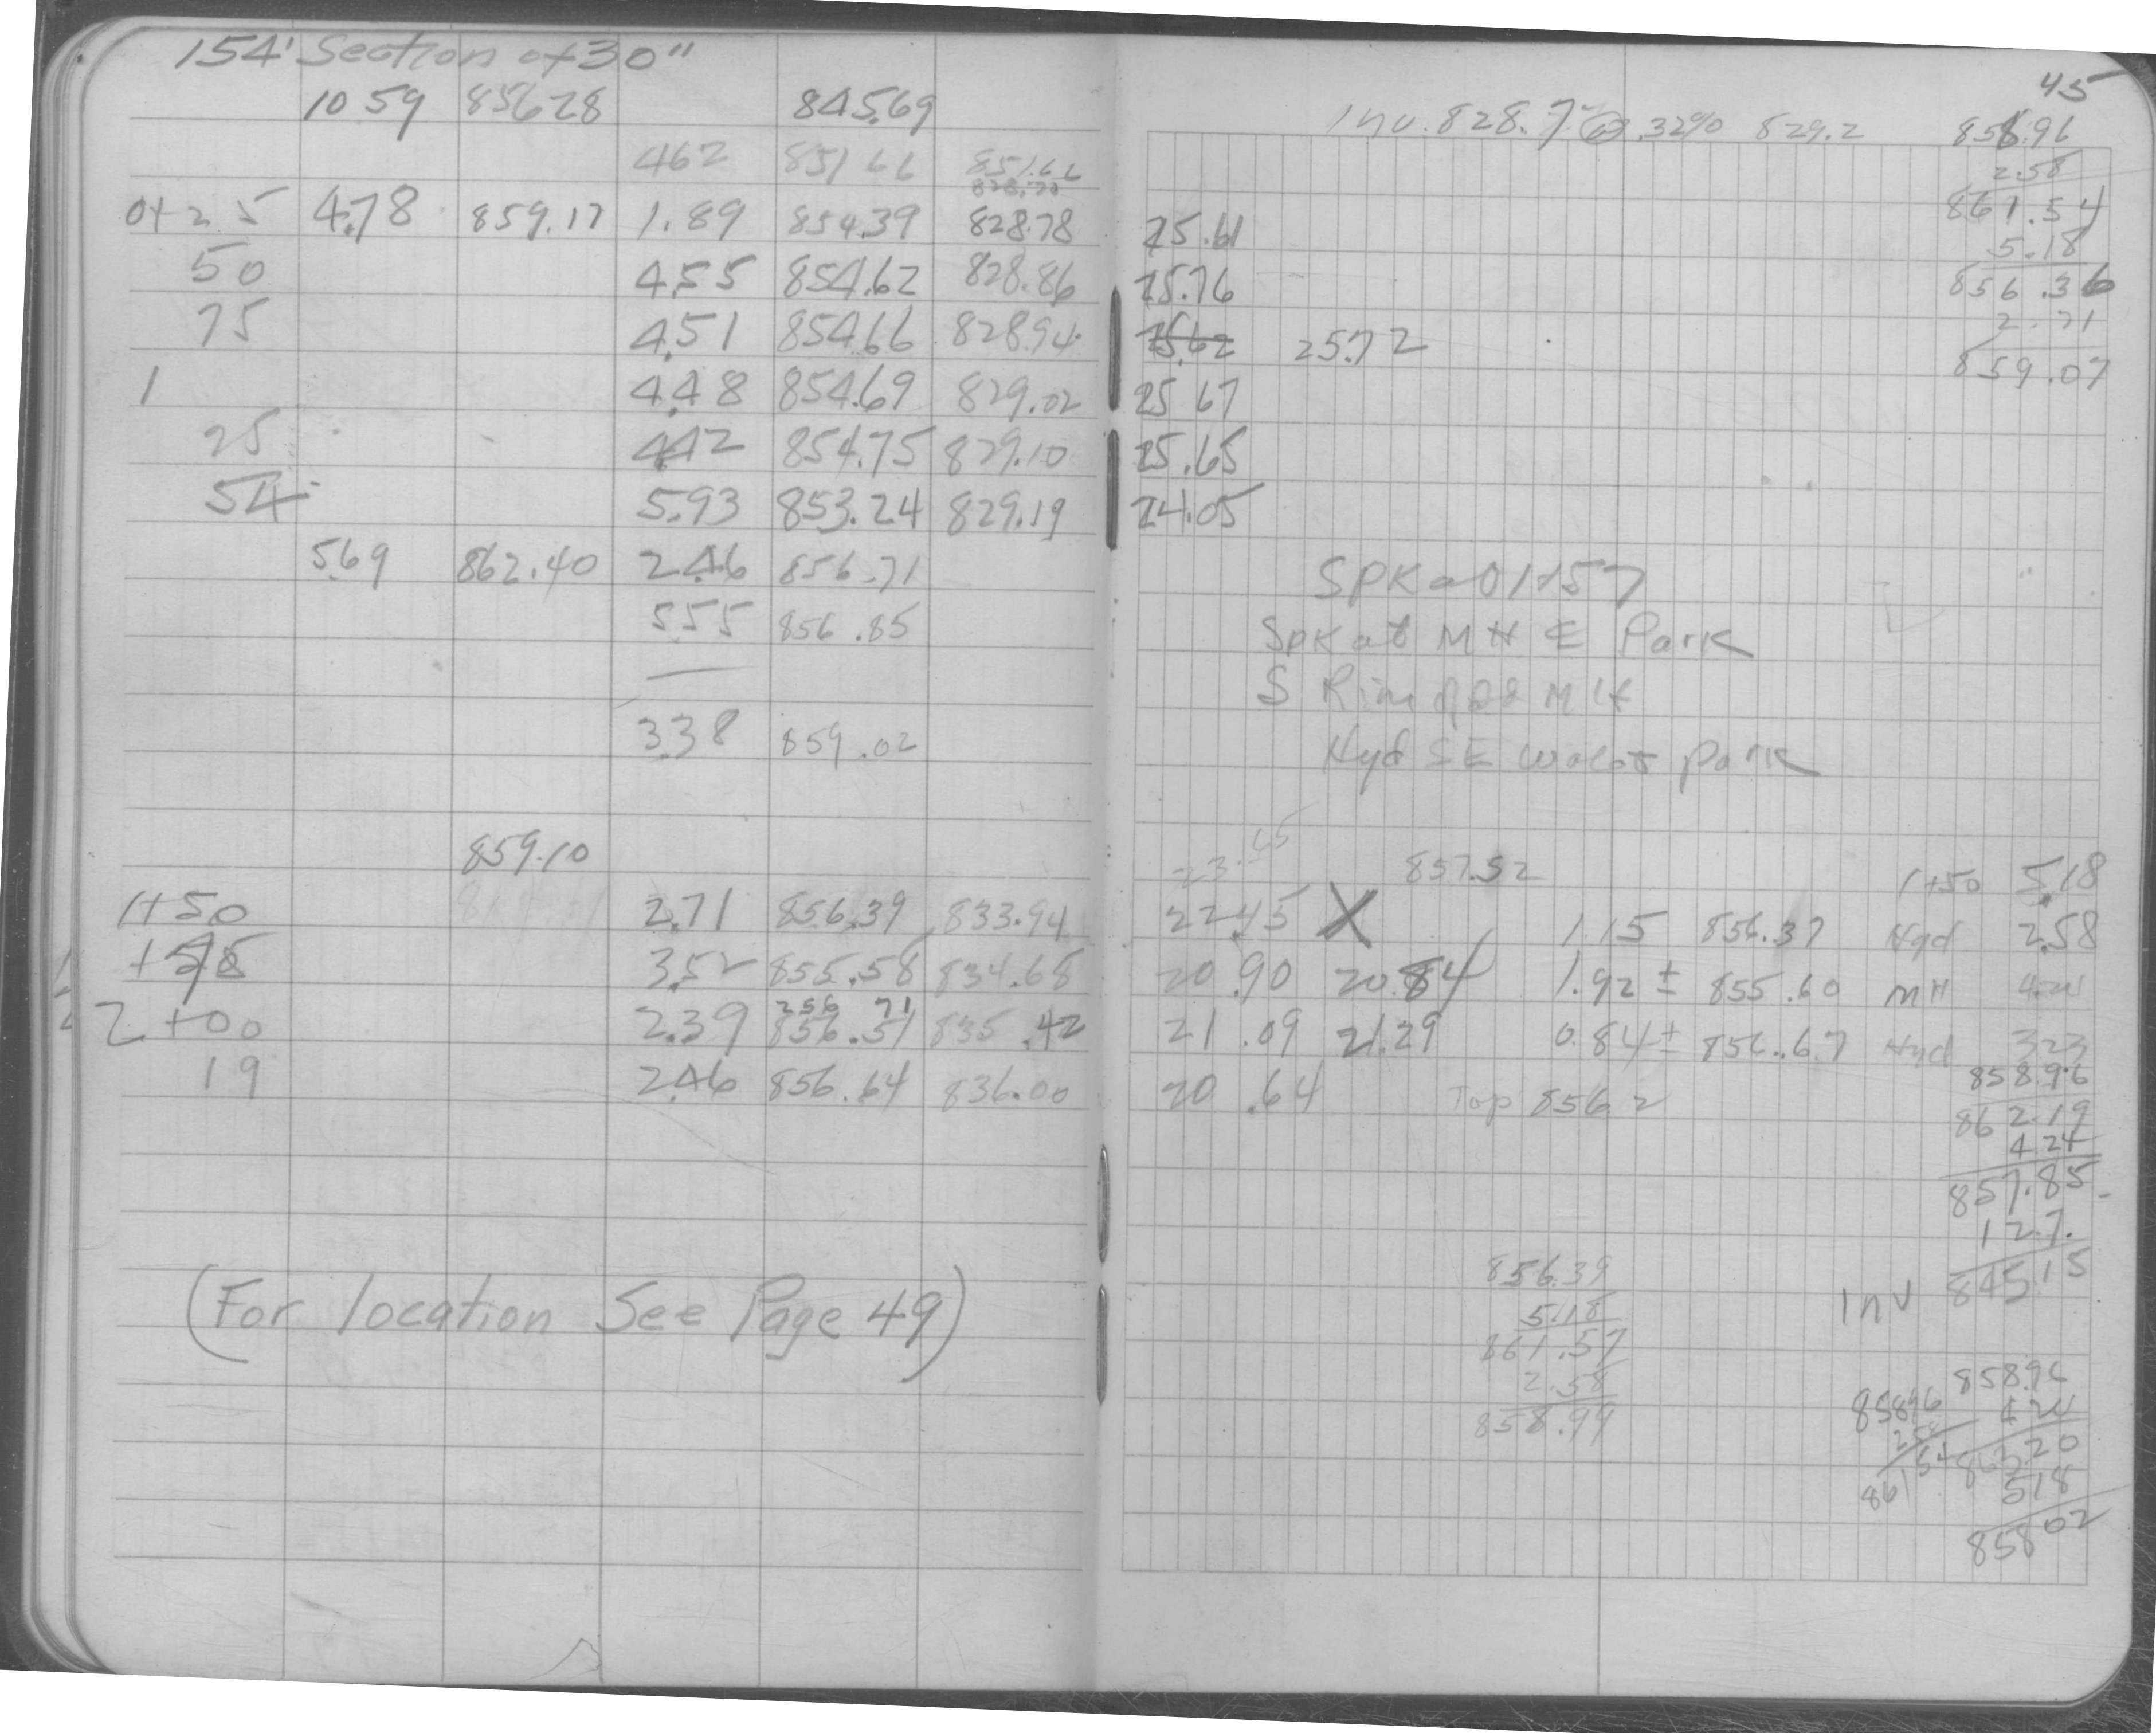 154' Section of 30"
10 59 856 28 845.69
4 62 851 66 851.66
828.70
0+25 4.78 859.17 1.89 854.39 828.78
50 4.55 854.62 828.86
75 4.51 854.66 828.94
1 4.48 854.69 829.02
25 4.42 854.75 829.10
54 5.93 853.24 829.19
5.69 862.40 2.46 856.71
5.55 856.85
3.38 859.02
859.10
1+50 2.71 856.39 833.94
+75 3.52 855.58 834.68
256 71
2+00 2.39 856.51 835.42
19 2.46 856.64 836.00
(For location See Page 49)
45
Inv. 828.7 @ .32% 829.2
25.61
25.76
25.62 25.72
25 67
25.65
24.05
858.96
2.58
861.54
5.18
856.36
2.71
859.07
SPK at 1+57
Spk at MH E Park
S Rim MH
Hyd SE Park
23.65 857.52 1+50 5.18
22.45 X 1.15 856.37 Hyd 2.58
20.90 20.84 1.92 ± 855.60 MH 4.24
21.09 21.29 0.84 ± 856.67 Hyd 3.23
20.64 Top 856.2
858.96
862.19
4.24
857.85
12.7
Inv 845.15
856.39
5.18
861.57
2.58
858.99
858.96
4.24
863.20
518
858 02
858.96
2.58
861 54